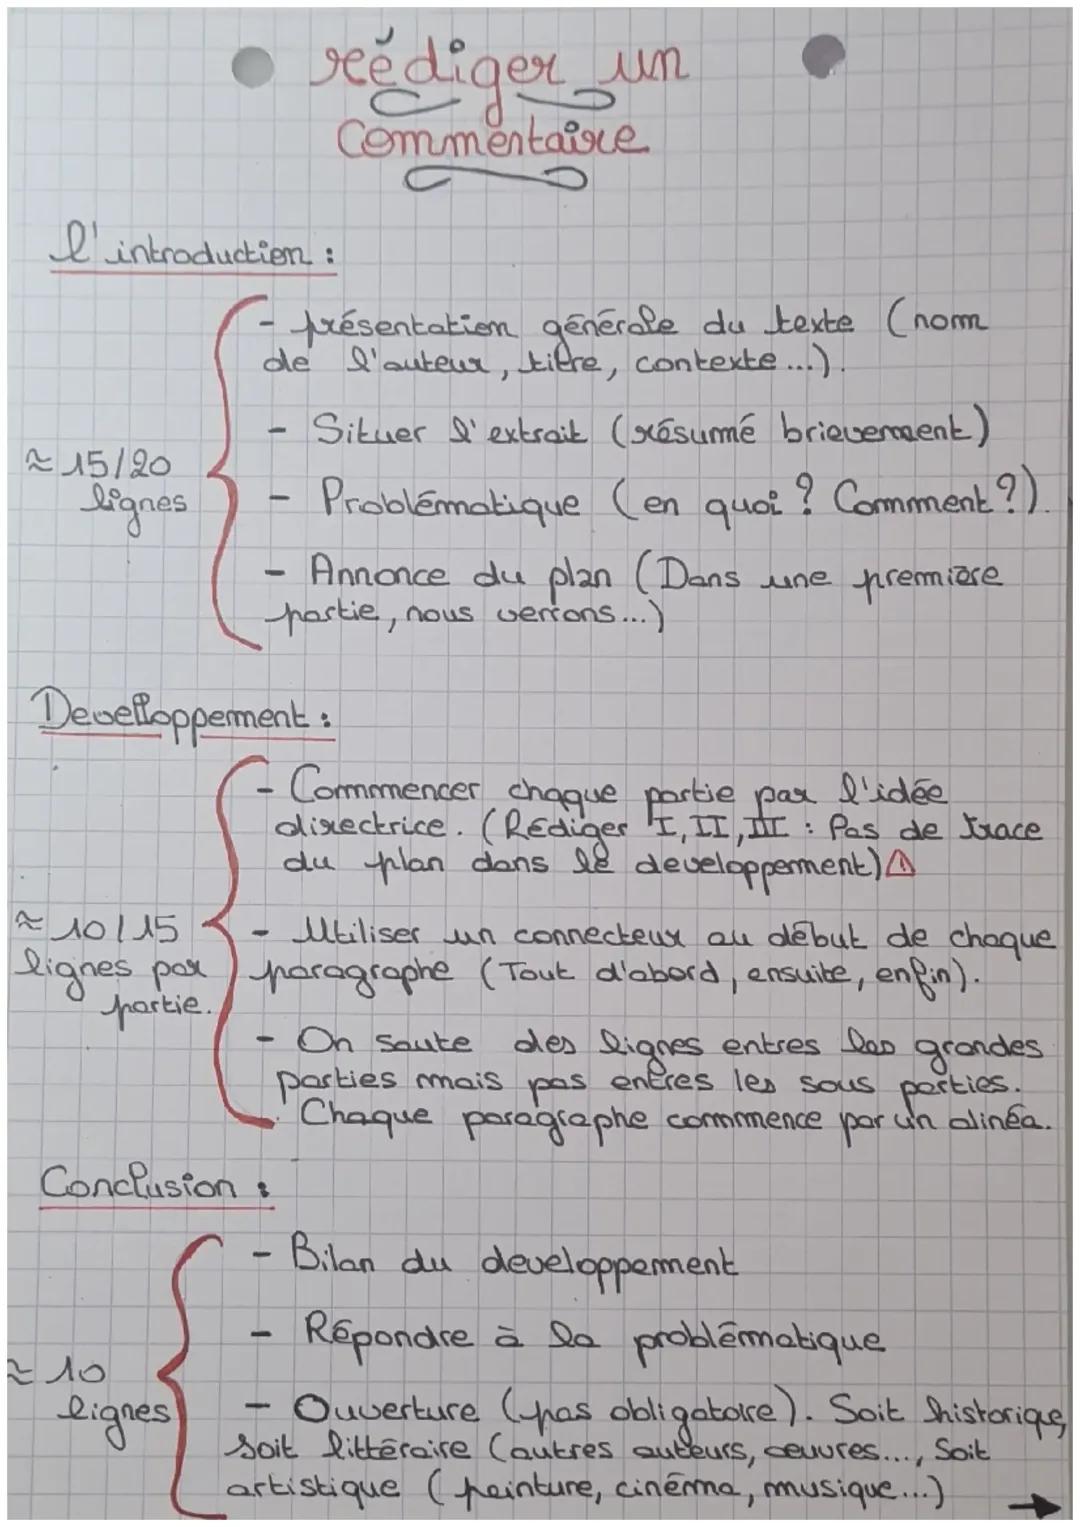 rédiger un
Commentaire
l'introduction :
- présentation générale du texte (nom
de l'auteur, titre, contexte...).
- Situer l'extrait (résumé brievement)
≈ 15/20
lignes
- Problématique (en quoi ? Comment ?).
- Annonce du plan (Dans une première
partie, nous verrons...)
Develloppement :
- Commencer chaque partie par l'idée
directrice. (Rédiger I, II, III : Pas de trace
du plan dans le developpement)⚠
≈ 10/15
lignes par
partie.
- Utiliser un connecteur au début de chaque
paragraphe (Tout d'abord, ensuite, enfin).
- On saute des lignes entres les grandes
parties mais pas entres les sous parties.
Chaque paragraphe commence par un alinéa.
Conclusion :
- Bilan du developpement
- Répondre à la problématique
≈ 10
lignes
- Ouverture (pas obligatoire). Soit historique,
soit littéraire (autres auteurs, œuvres..., Soit
artistique (peinture, cinéma, musique...)
→